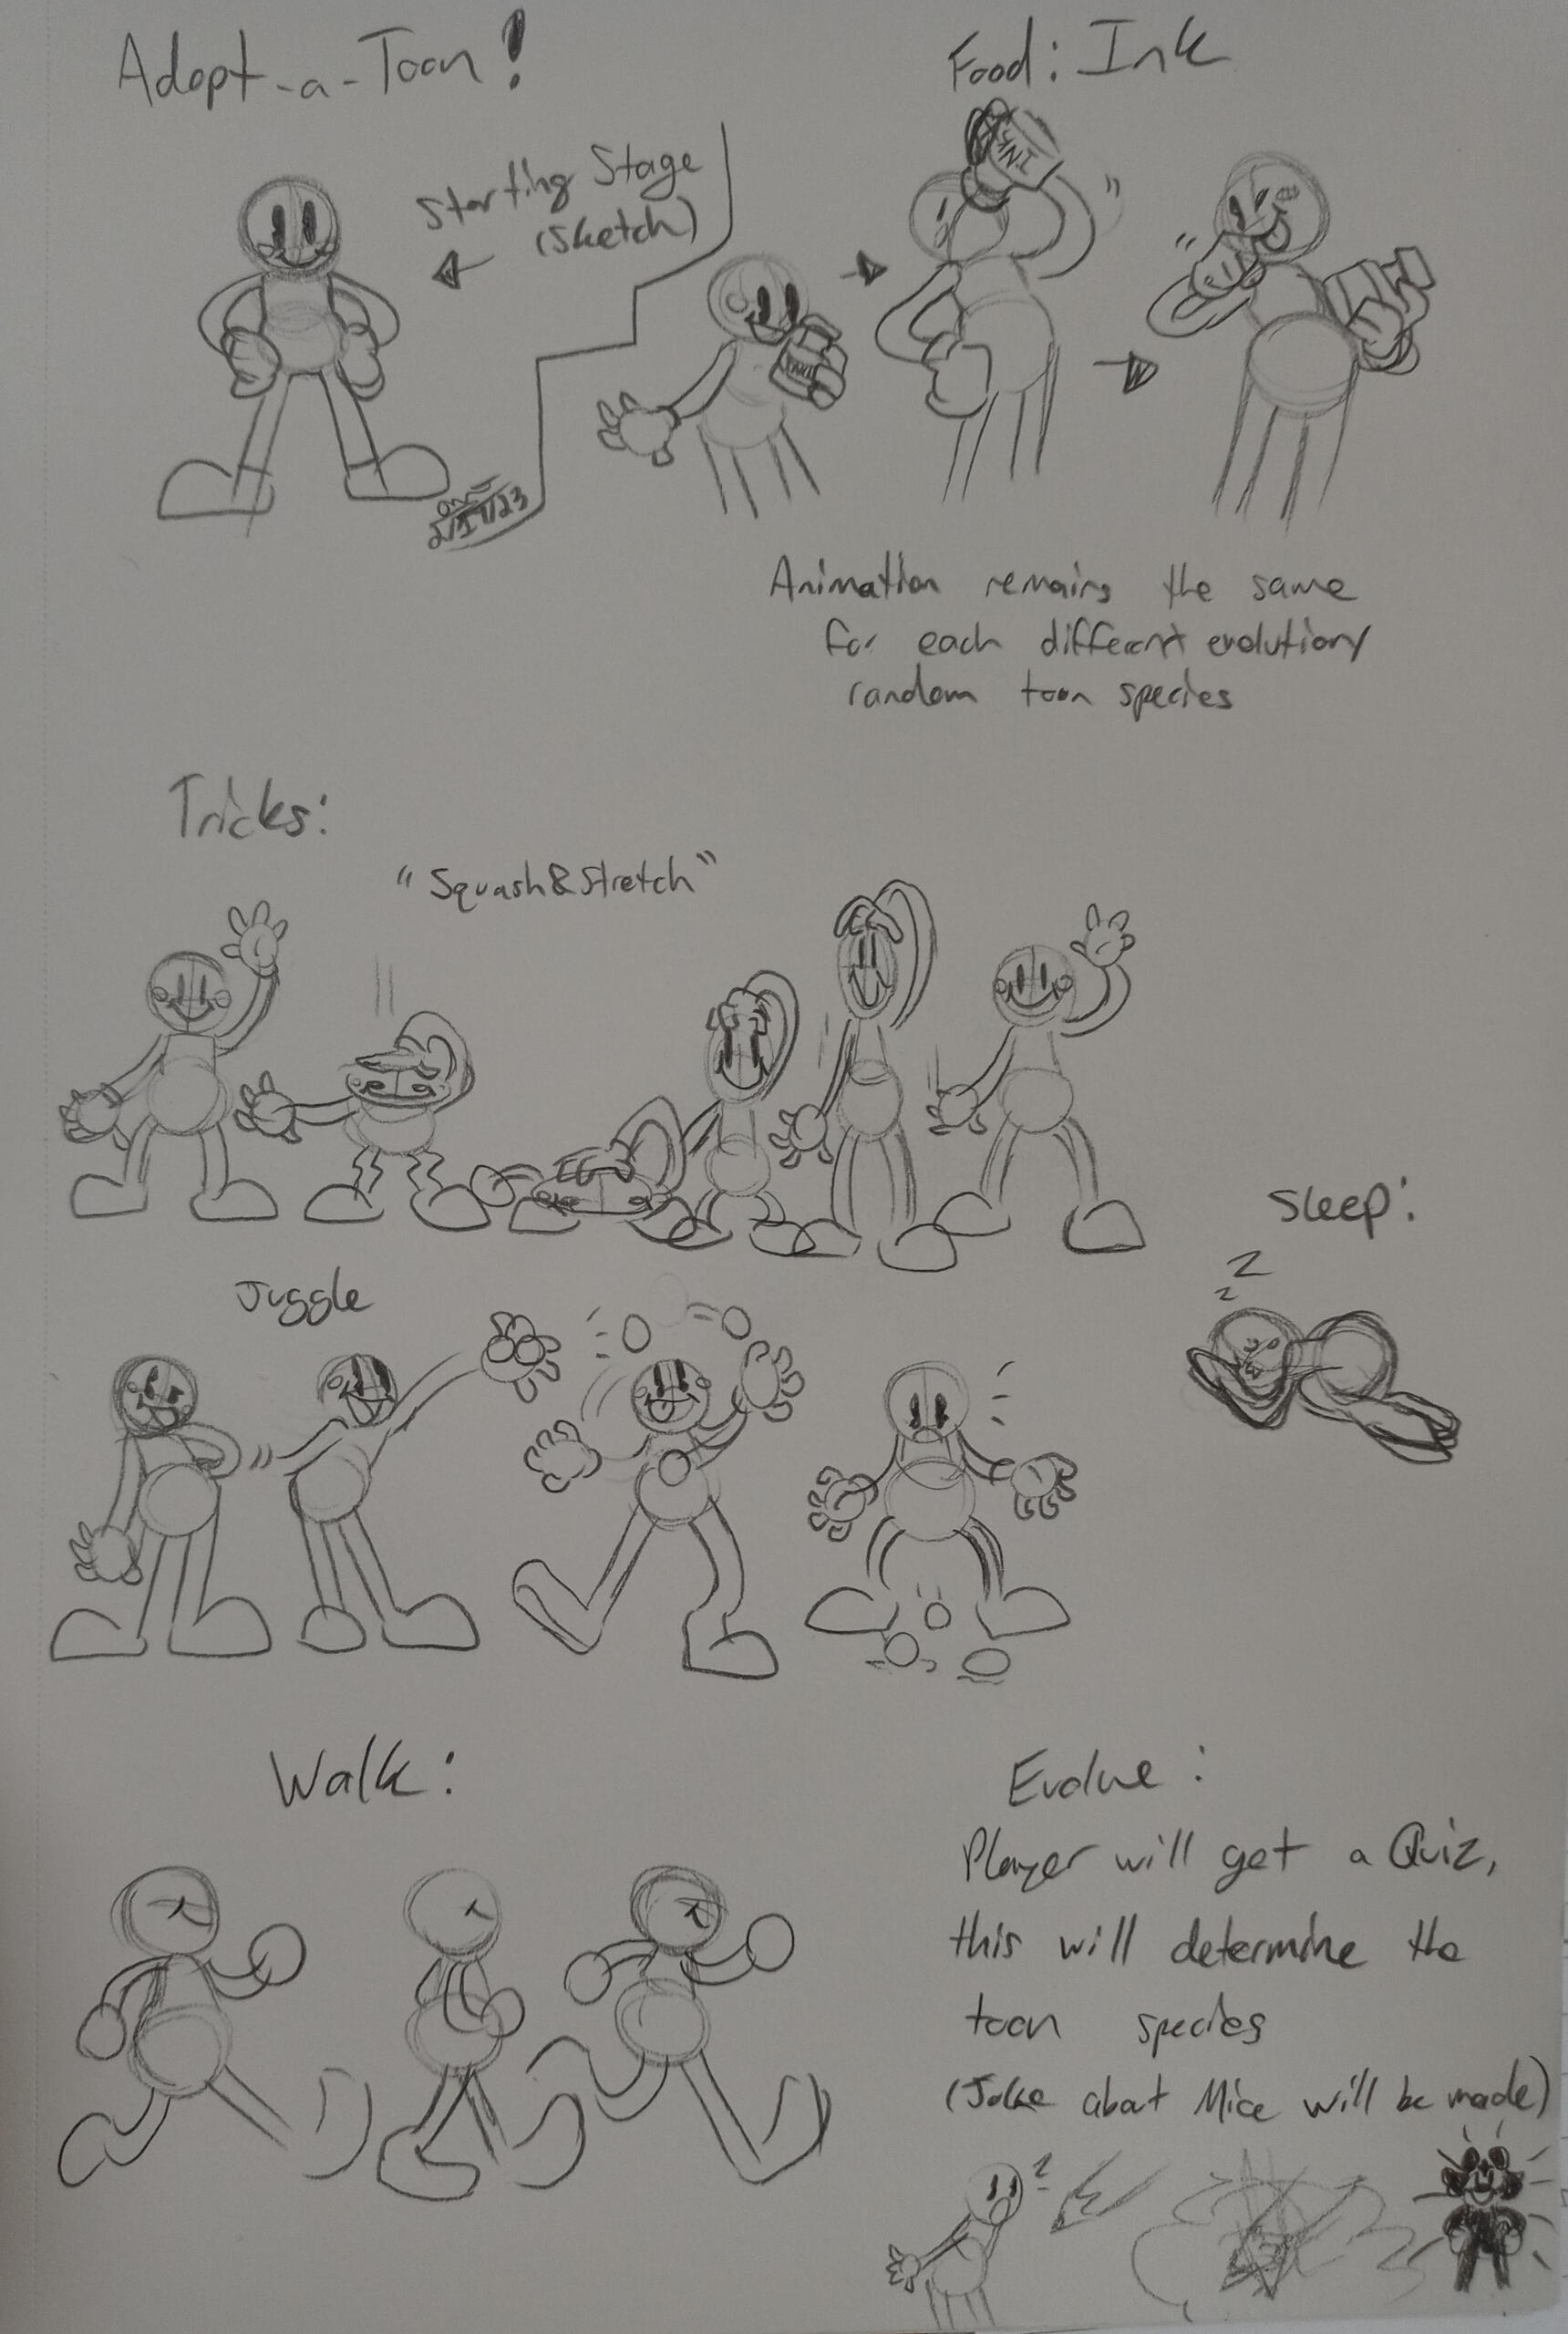 Adopt-a-Toon!
Food: Ink
Starting Stage
(sketch)
INK
INK
2/17/23
Animation remains the same
for each different evolutiony
random toon species
Tricks:
"Squash & Stretch"
Sleep:
z
z
Juggle
Walk:
Evolve:
Player will get a Quiz,
this will determine the
toon species
(Joke about Mice will be made)